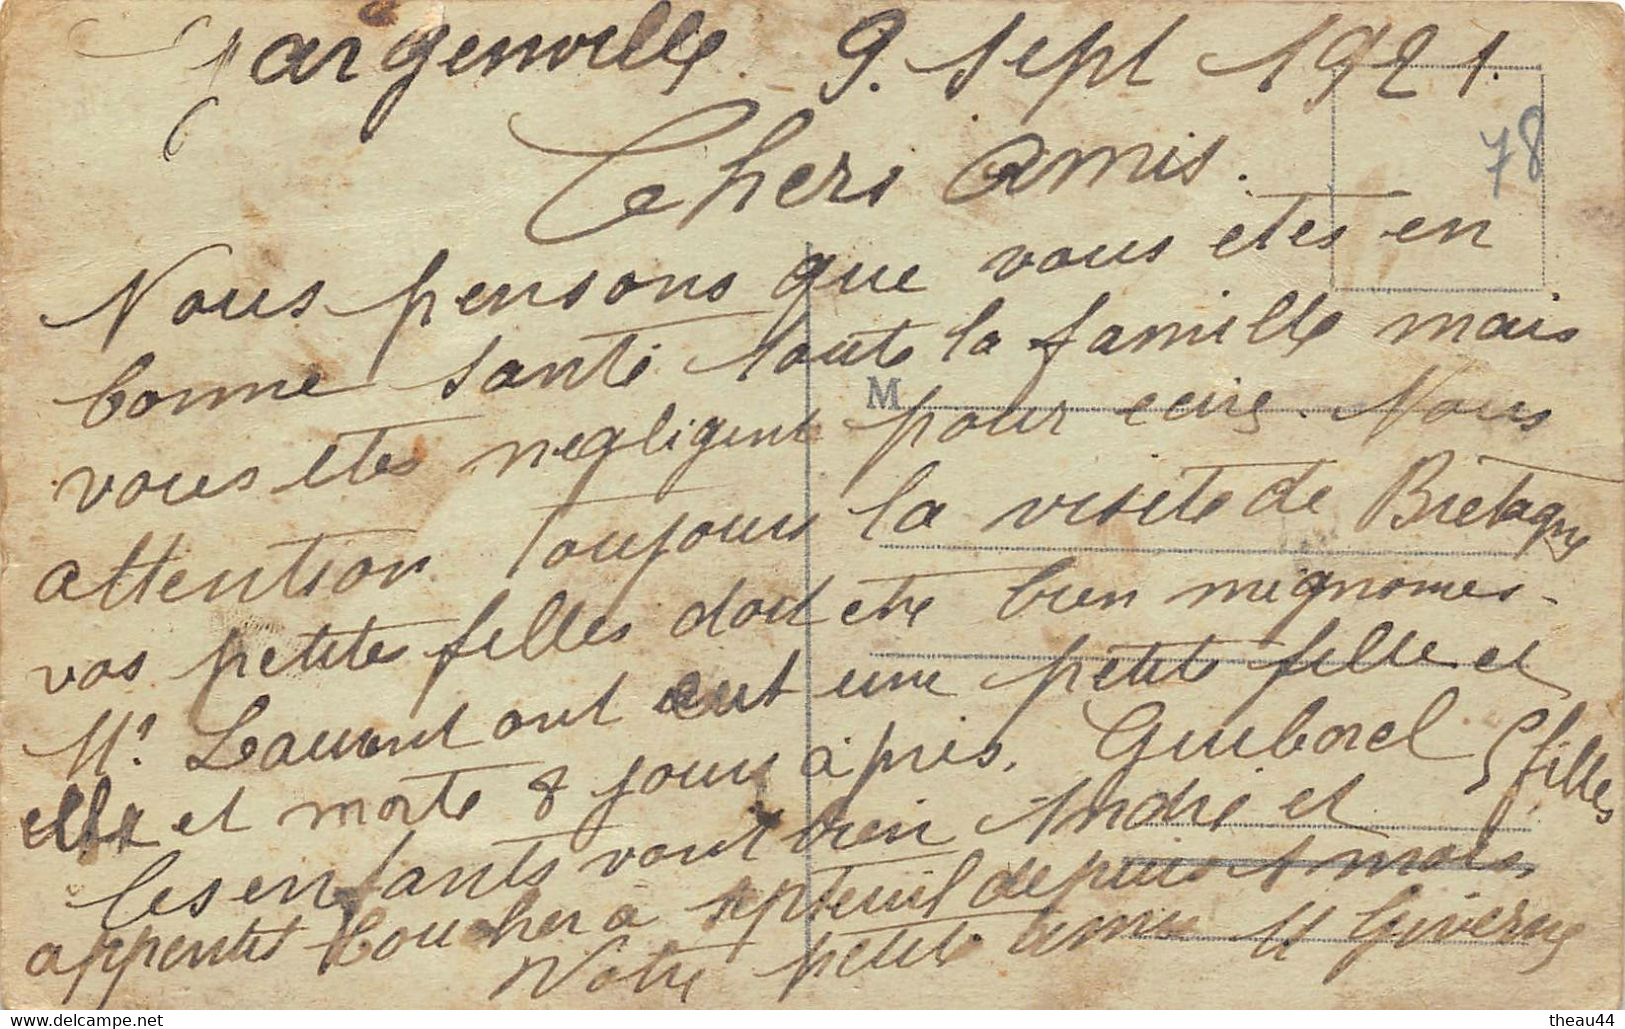 Gargenville. 9. Sept 1921.
78
Chers amis.
Nous pensons que vous etes en
bonne santé toute la famille mais
M
vous etes negligent pour ecire. Nous
attention toujours la visite de Bretagne
vos petite filles doit etre bien mignonnes-
Mr. Laurent ont eut une petite fille et
elle et morte 8 jours après. Guiborel 5 filles
les enfants vont bien André et
appentit boucher à septeuil depuis 1 mois
Notre petite amie M Giverne
theau44